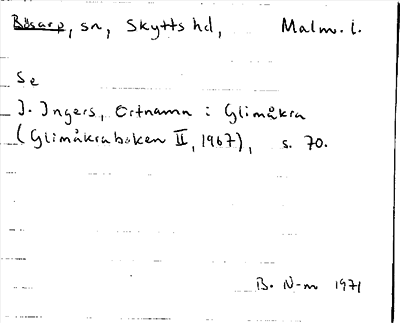 Bösarp, sn, Skytts hd, Malm. l.
Se
I. Ingers, Ortnamn i Glimåkra
(Glimåkraboken II, 1967), s. 70.
B. N-m 1971